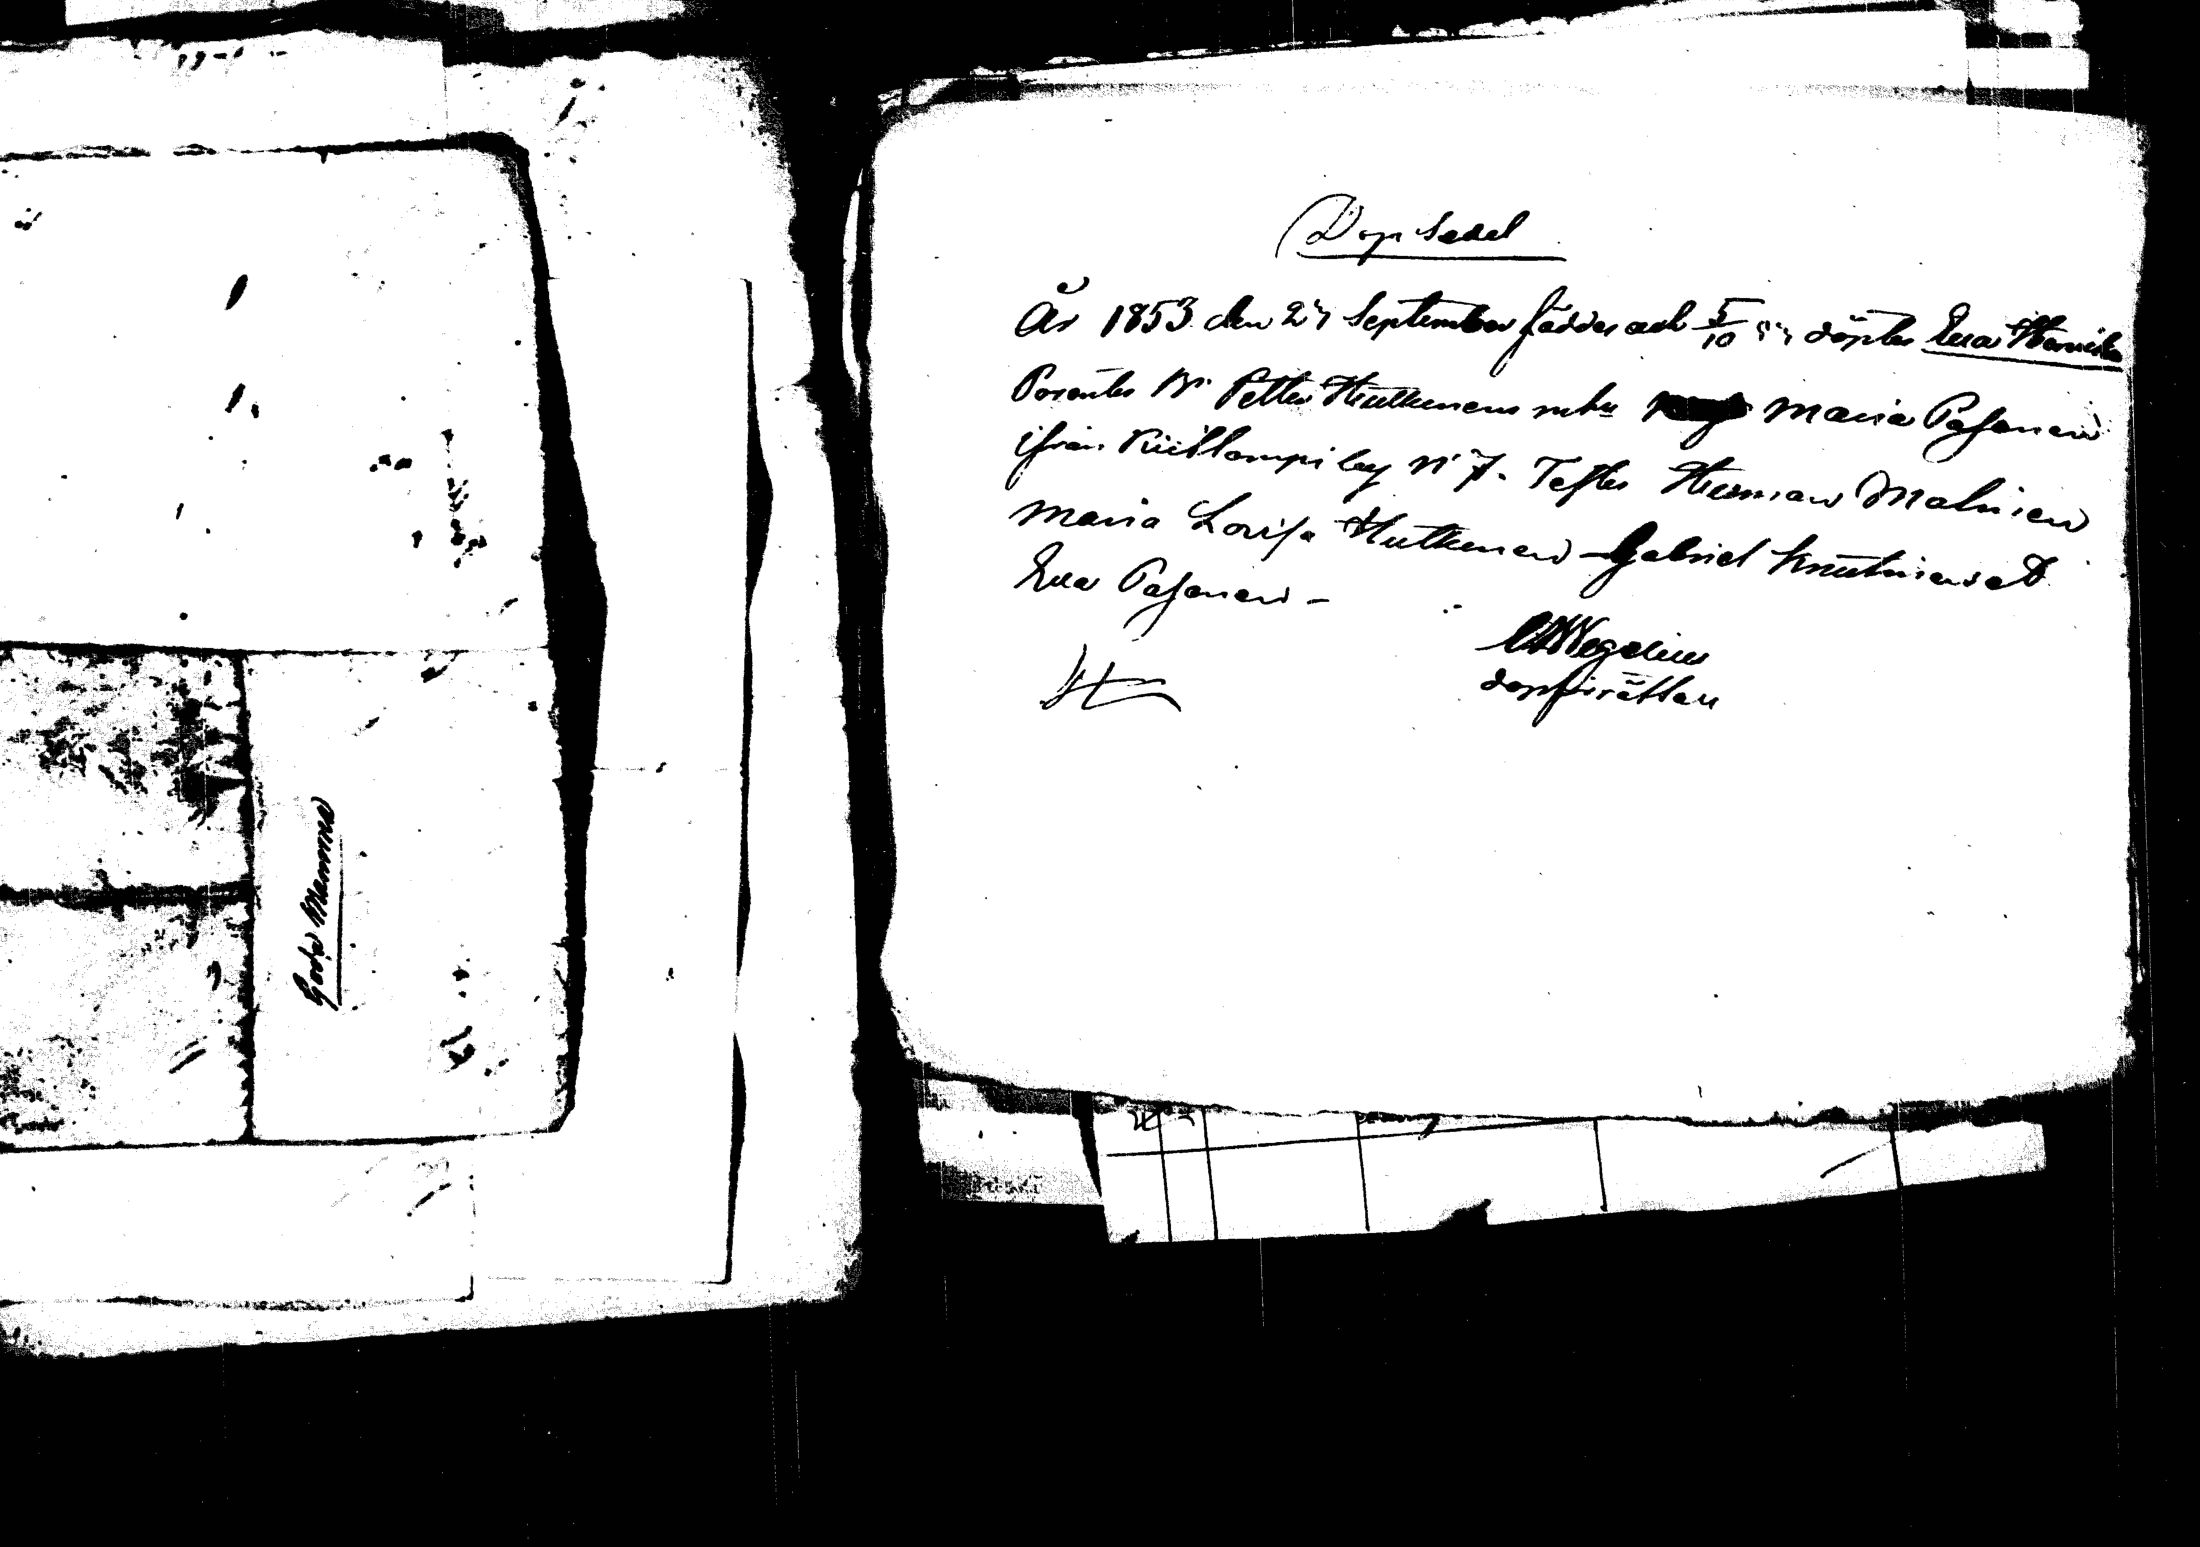 Goda Mamma
Dop Sedel
År 1853 den 27 September föddes och 5/10 döptes Eva Henrika
Parentes B. Petter Hutkunens m hu Maria Pasanen
ifrån Kiillampi by N 7. Testes Herman Malinen
Maria Lovisa Hutkunen Gabriel Knuutinen et
Eva Pasanen -
Wegelius
dopförrättare